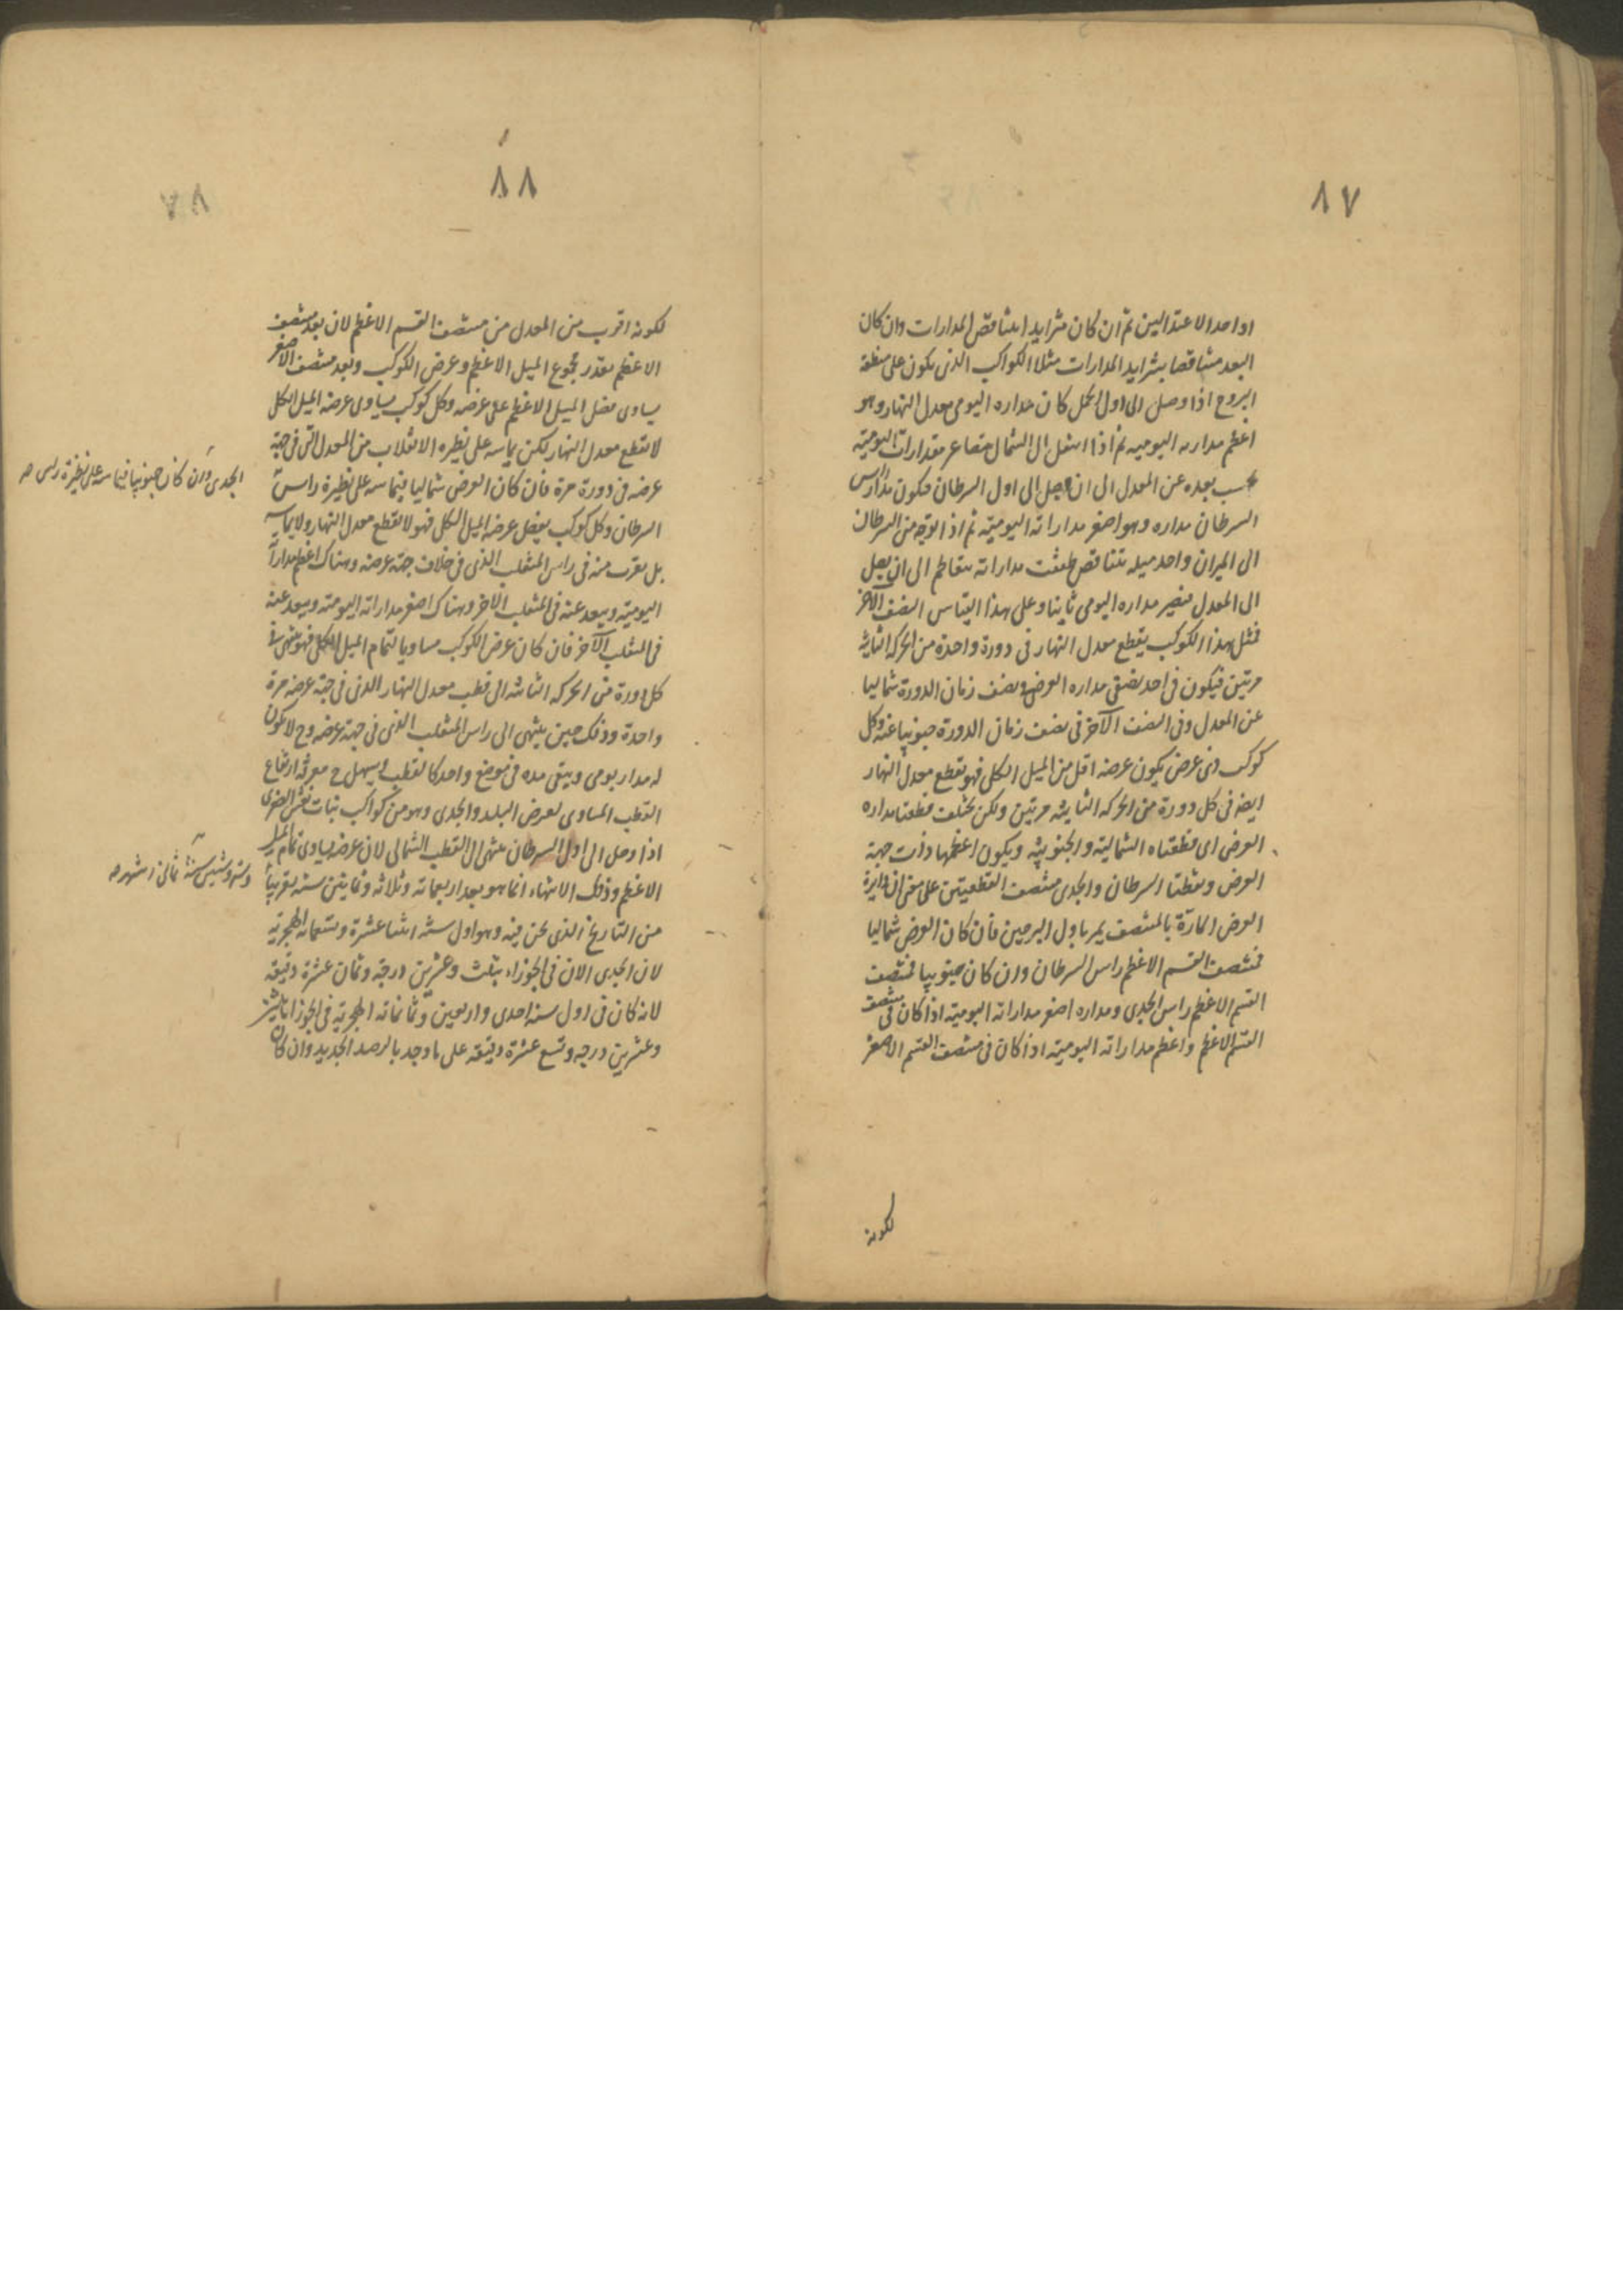 ٨٧
او احد الاعتدالين ثم ان كان متزايدا يتناقص المدارات وان كان
البعد متناقصا يتزايد المدارات مثلا الكواكب الذى يكون على منطقة
البروج اذا وصل الى اول الحمل كان مداره اليومى معدل النهار وهو
اعظم مداراته اليومية ثم اذا انتقل الى الشمال يتصاغر مقدارات اليومية
بحسب بعده عن المعدل الى ان يصل الى اول السرطان فيكون مدار راس
السرطان مداره وهو اصغر مداراته اليومية ثم اذا توجه من السرطان
الى الميزان واخذ ميله يتناقص طفقت مداراته يتعاظم الى ان يصل
الى المعدل فيصير مداره اليومى ثانيا وعلى هذا القياس النصف الآخر
فمثل هذا الكوكب يقطع معدل النهار فى دورة واحدة من الحركة الثانية
مرتين فيكون فى احد نصفى مداره العرضى ونصف زمان الدورة شماليا
عن المعدل وفى النصف الآخر فى نصف زمان الدورة جنوبيا عنه وكل
كوكب ذى عرض يكون عرضه اقل من الميل الكلى فهو يقطع معدل النهار
ايضا فى كل دورة من الحركة الثانية مرتين ولكن يختلف قطعتا مداره
العرض اى قطعتاه الشمالية والجنوبية ويكون اعظمها ذات جهة
العرض ونقطتا السرطان والجدى منتصف القطعتين على معنى ان دايرة
العرض المارة بالمنتصف يمر باول البرجين فان كان العرض شماليا
فمنتصف القسم الاعظم راس السرطان وان كان جنوبيا فمنتصف
القسم الاعظم راس الجدى ومداره اصغر مداراته اليومية اذا كان فى منتصف
القسم الاعظم واعظم مداراته اليومية اذا كان فى منتصف القسم الاصغر
لكونه
٨٨
٧٨
لكونه اقرب من المعدل من منتصف القسم الاعظم لان بعد منتصف
الاعظم بقدر مجموع الميل الاعظم وعرض الكوكب وبعد منتصف الاصغر
يساوى فضل الميل الاعظم على عرضه وكل كوكب يساوى عرضه الميل الكلى
لا يقطع معدل النهار لكن يماسه على نظيره الانقلاب من المعدل التى فى جهة
عرضه فى دورة مرة فان كان العرض شماليا فيماسه على نظيرة راس
الجدى وان كان جنوبيا فيماسه على نظيرة راس صح
السرطان وكل كوكب يفضل عرضه الميل الكلى فهو لا يقطع معدل النهار ولا يماسه
بل يقرب منه فى راس المنقلب الذى فى خلاف جهة عرضه وهناك اعظم مداراته
اليومية ويبعد عنه فى المنقلب الآخر وهناك اصغر مداراته اليومية ويبعد عنه
فى المنقلب الآخر فان كان عرض الكوكب مساويا لتمام الميل الكلى فهو ينتهى فى
كل دورة من الحركة الثانية الى قطب معدل النهار الذى فى جهة عرضه مرة
واحدة وذلك حين ينتهى الى راس المنقلب الذى فى جهة عرضه وح لا يكون
له مدار يومى ويبقى مدة فى موضع واحد كالقطب ويسهل ح معرفة ارتفاع
القطب المساوى لعرض البلد والجدى وهو من كواكب بنات نعش الصغرى
اذا وصل الى اول السرطان ينتهى الى القطب الشمالى لان عرضه يساوى تمام الميل
وستة وستين سنة ثمانى اشهر صح
الاعظم وذلك الانتهاء انما هو بعد اربعمائة وثلاثة وثمانين سنة تقريبا
من التاريخ الذى نحن فيه وهو اول سنة اثنتا عشرة وتسعمائة الهجرية
لان الجدى الان فى الجوزاء بثلث وعشرين درجة وثمان عشرة دقيقة
لانه كان فى اول سنة احدى واربعين وثمانمائة الهجرية فى الجوزا باثنين
وعشرين درجة وتسع عشرة دقيقة على ما وجد بالرصد الجديد وان كان